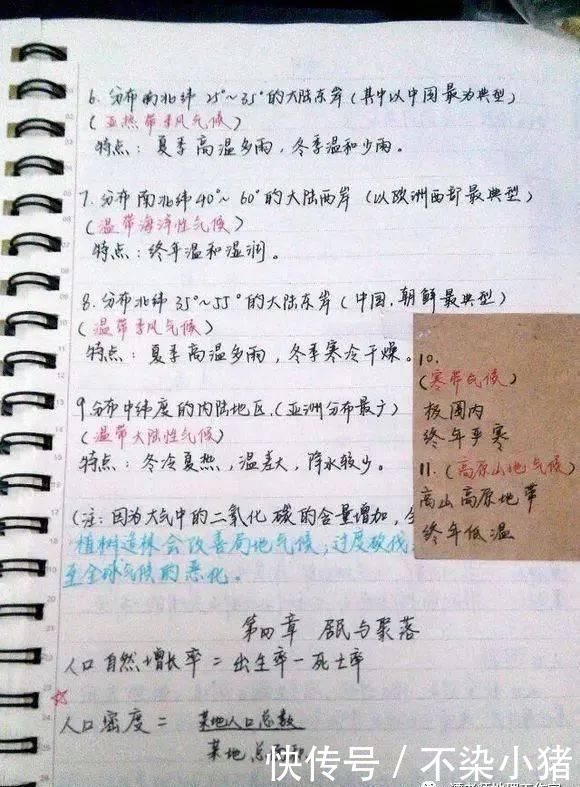 6. 分布南北纬 25°~35°的大陆东岸(其中以中国最为典型)
(亚热带季风气候)
特点: 夏季高温多雨, 冬季温和少雨。
7. 分布南北纬40°~60°的大陆西岸 (以欧洲西部最典型)
(温带海洋性气候)
特点: 终年温和湿润。
8. 分布北纬 35°~55°的大陆东岸 (中国, 朝鲜最典型)
(温带季风气候)
特点: 夏季高温多雨, 冬季寒冷干燥。
9. 分布中纬度的内陆地区, (亚洲分布最广)
(温带大陆性气候)
特点: 冬冷夏热, 温差大, 降水较少。
10.
(寒带气候)
极圈内
终年严寒
11. (高原山地气候)
高山高原地带
终年低温
(注: 因为大气中的二氧化碳的含量增加,
植树造林会改善局地气候, 过度砍伐
至全球气候的恶化。
第四章 居民与聚落
人口自然增长率 = 出生率 - 死亡率
人口密度 = 某地人口总数
某地总
快传号 / 不染小猪